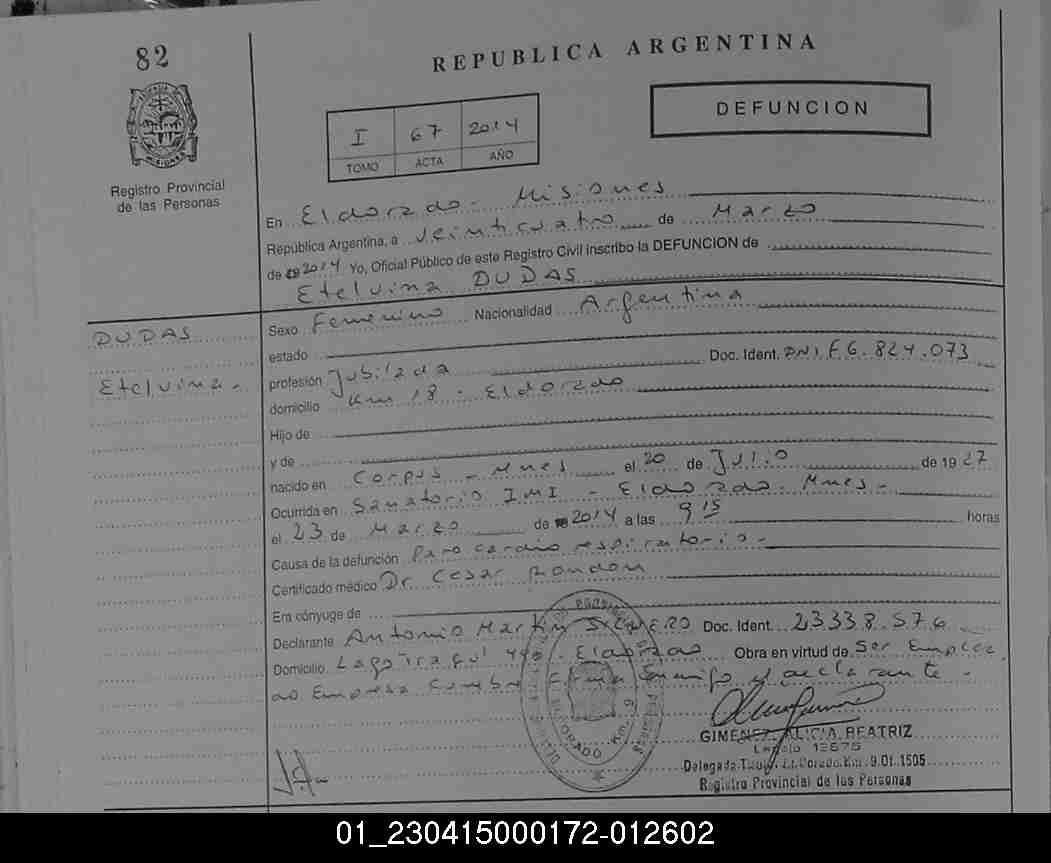 82
REPUBLICA ARGENTINA
DEFUNCION
I 67 2014
TOMO ACTA AÑO
MISIONES
Registro Provincial
de las Personas
En Eldorado - Misiones
República Argentina, a veinticuatro de Marzo
de 2014 Yo, Oficial Público de este Registro Civil inscribo la DEFUNCION de
Etelvina DUDAS
DUDAS
Etelvina -
Sexo Femenino Nacionalidad Argentina
estado
profesión Jubilada Doc. Ident. DNI F6.824.073
domicilio Km 18 - Eldorado
Hijo de
y de
nacido en Corpus - Mnes el 20 de Julio de 1927
Ocurrida en Sanatorio IMI - Eldorado - Mnes -
el 23 de Marzo de 2014 a las 9 15 horas
Causa de la defunción Paro cardio respiratorio -
Certificado médico Dr. Cesar Rondon
Era cónyuge de
Declarante Antonio Martin Doc. Ident. 23338.576
Domicilio Lago Eldorado Obra en virtud de Ser Emplea
do Empresa firma conmigo el declarante -
GIMENEZ ALICIA BEATRIZ
Legajo 12675
Delegada Titul. El Dorado Km. 9 Of. 1505
Registro Provincial de las Personas
01_230415000172-012602